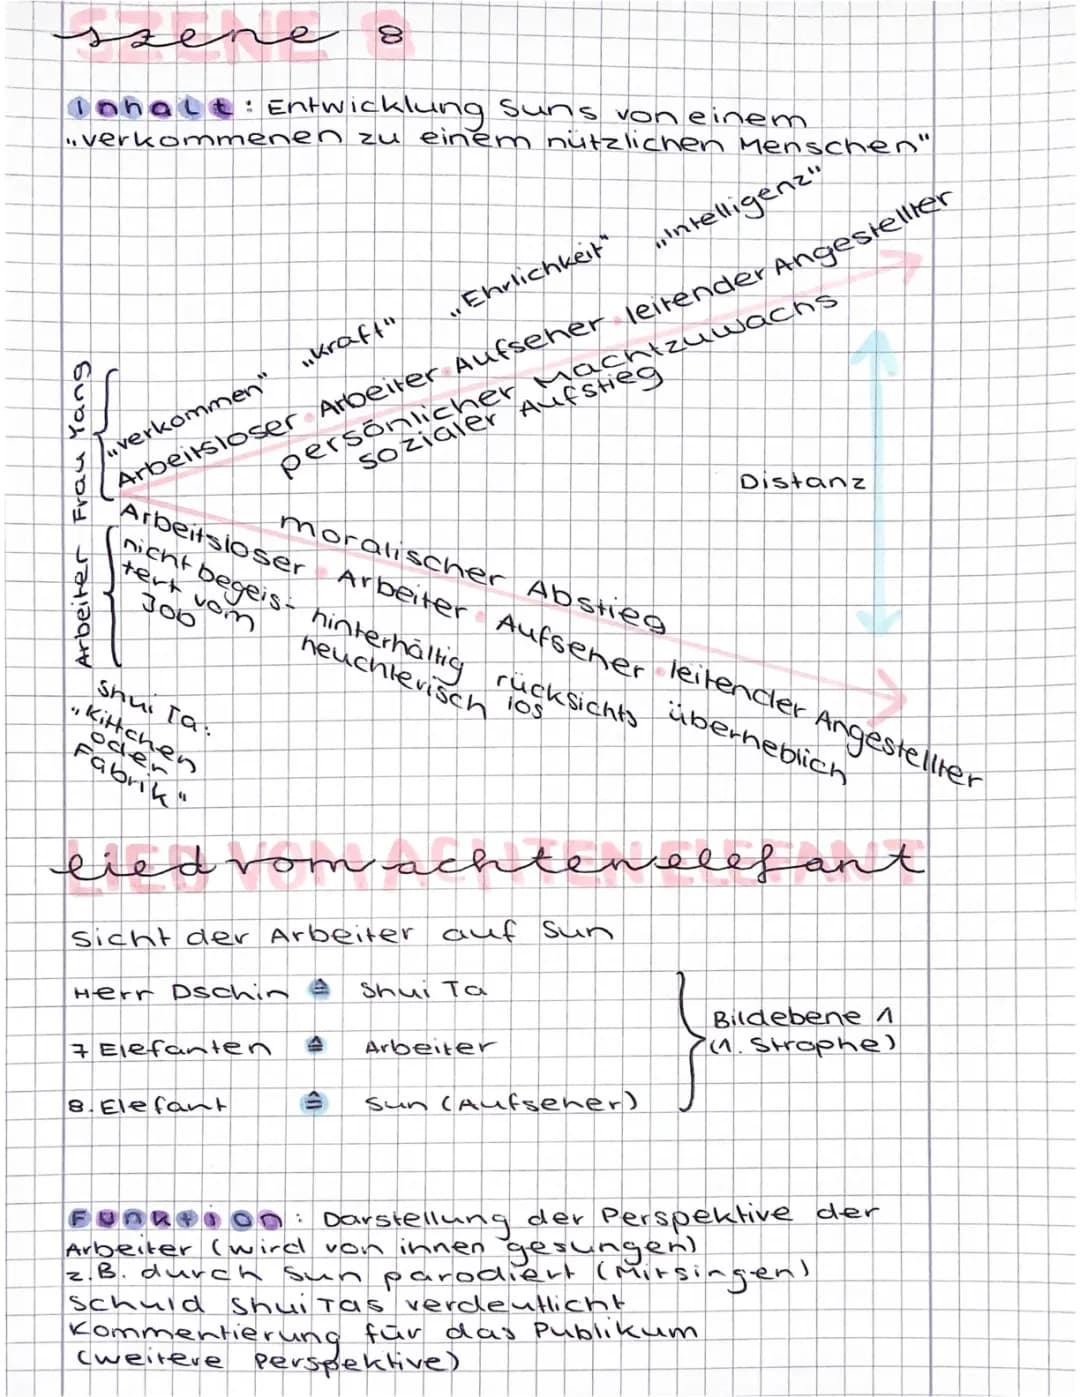 szene 8
Inhalt: Entwicklung Suns von einem
„verkommenen zu einem nützlichen Menschen"
„verkommen" „kraft" „Ehrlichkeit" „Intelligenz"
Arbeitsloser • Arbeiter • Aufseher • leitender Angestellter
persönlicher Machtzuwachs
sozialer Aufstieg
Frau Yang
Distanz
moralischer Abstieg
Arbeitsloser • Arbeiter • Aufseher • leitender Angestellter
Arbeiter
nicht begeis-
tert vom
Job
hinterhältig
heuchlerisch
rücksichts
los
überheblich
Shui Ta:
„Kittchen
oder
Fabrik"
lied vom achten elefant
Sicht der Arbeiter auf Sun
Herr Dschin ≙ Shui Ta
7 Elefanten ≙ Arbeiter
8. Elefant ≙ Sun (Aufseher)
Bildebene 1
(1. Strophe)
Funktion: Darstellung der Perspektive der
Arbeiter (wird von ihnen gesungen)
z.B. durch Sun parodiert (Mitsingen)
Schuld Shui Tas verdeutlicht
Kommentierung für das Publikum
(weitere Perspektive)